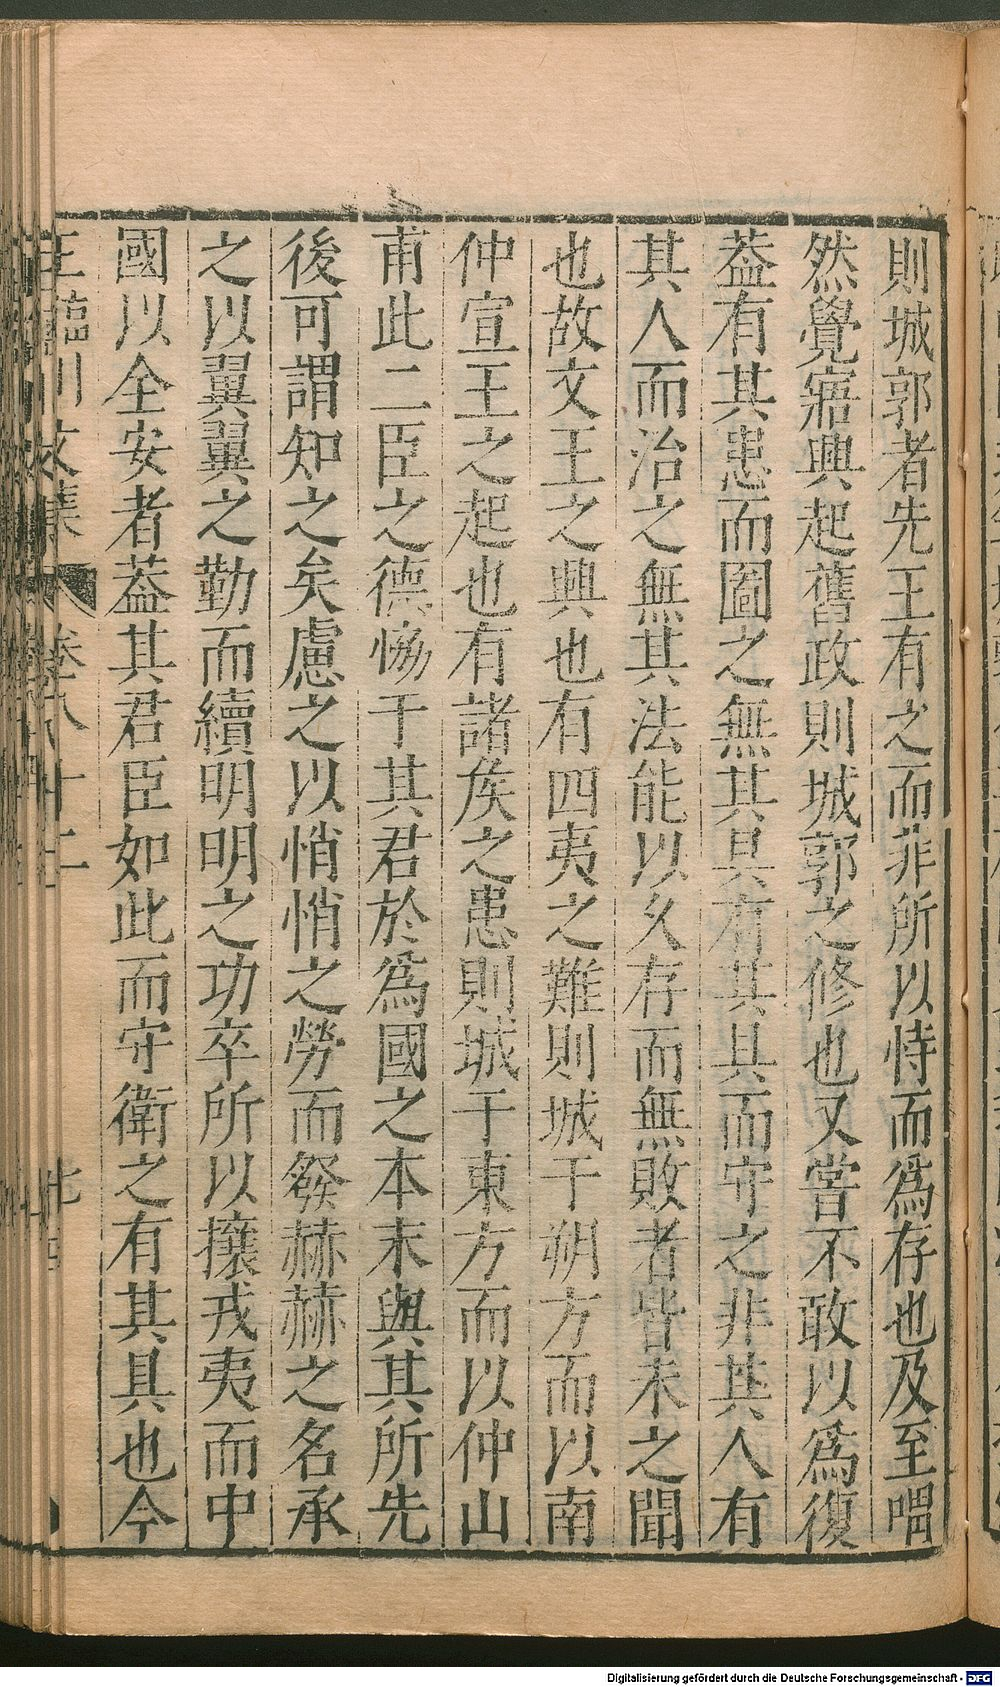 則城郭者先王有之而非所以恃而爲存也及至喟
然覺寤興起舊政則城郭之修也又嘗不敢以爲復
葢有其患而圖之無其具有其具而守之非其人有
其人而治之無其法能以久存而無敗者皆未之聞
也故文王之興也有四夷之難則城于朔方而以南
仲宣王之起也有諸矦之患則城于東方而以仲山
甫此二臣之德恊于其君於爲國之本末與其所先
後可謂知之矣慮之以悄悄之勞而發赫赫之名承
之以翼翼之勤而續明明之功卒所以攘戎夷而中
國以全安者葢其君臣如此而守衛之有其具也今
王臨川文集 卷八十二
Digitalisierung gefördert durch die Deutsche Forschungsgemeinschaft - DFG